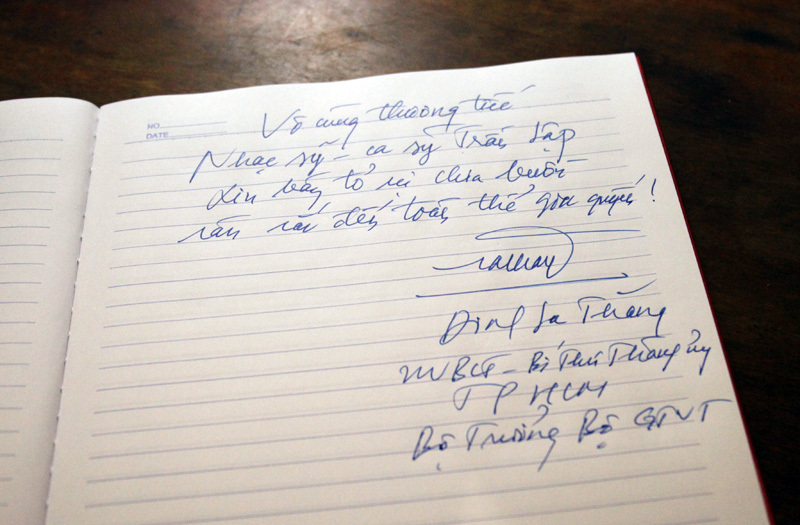 NO.
DATE
Vô cùng thương tiếc
Nhạc sỹ - ca sỹ Trần Lập
Xin bày tỏ sự chia buồn
sâu sắc đến toàn thể gia quyến!
Đinh La Thăng
UVBCT - Bí Thư Thành ủy
TP HCM
Bộ Trưởng Bộ GTVT